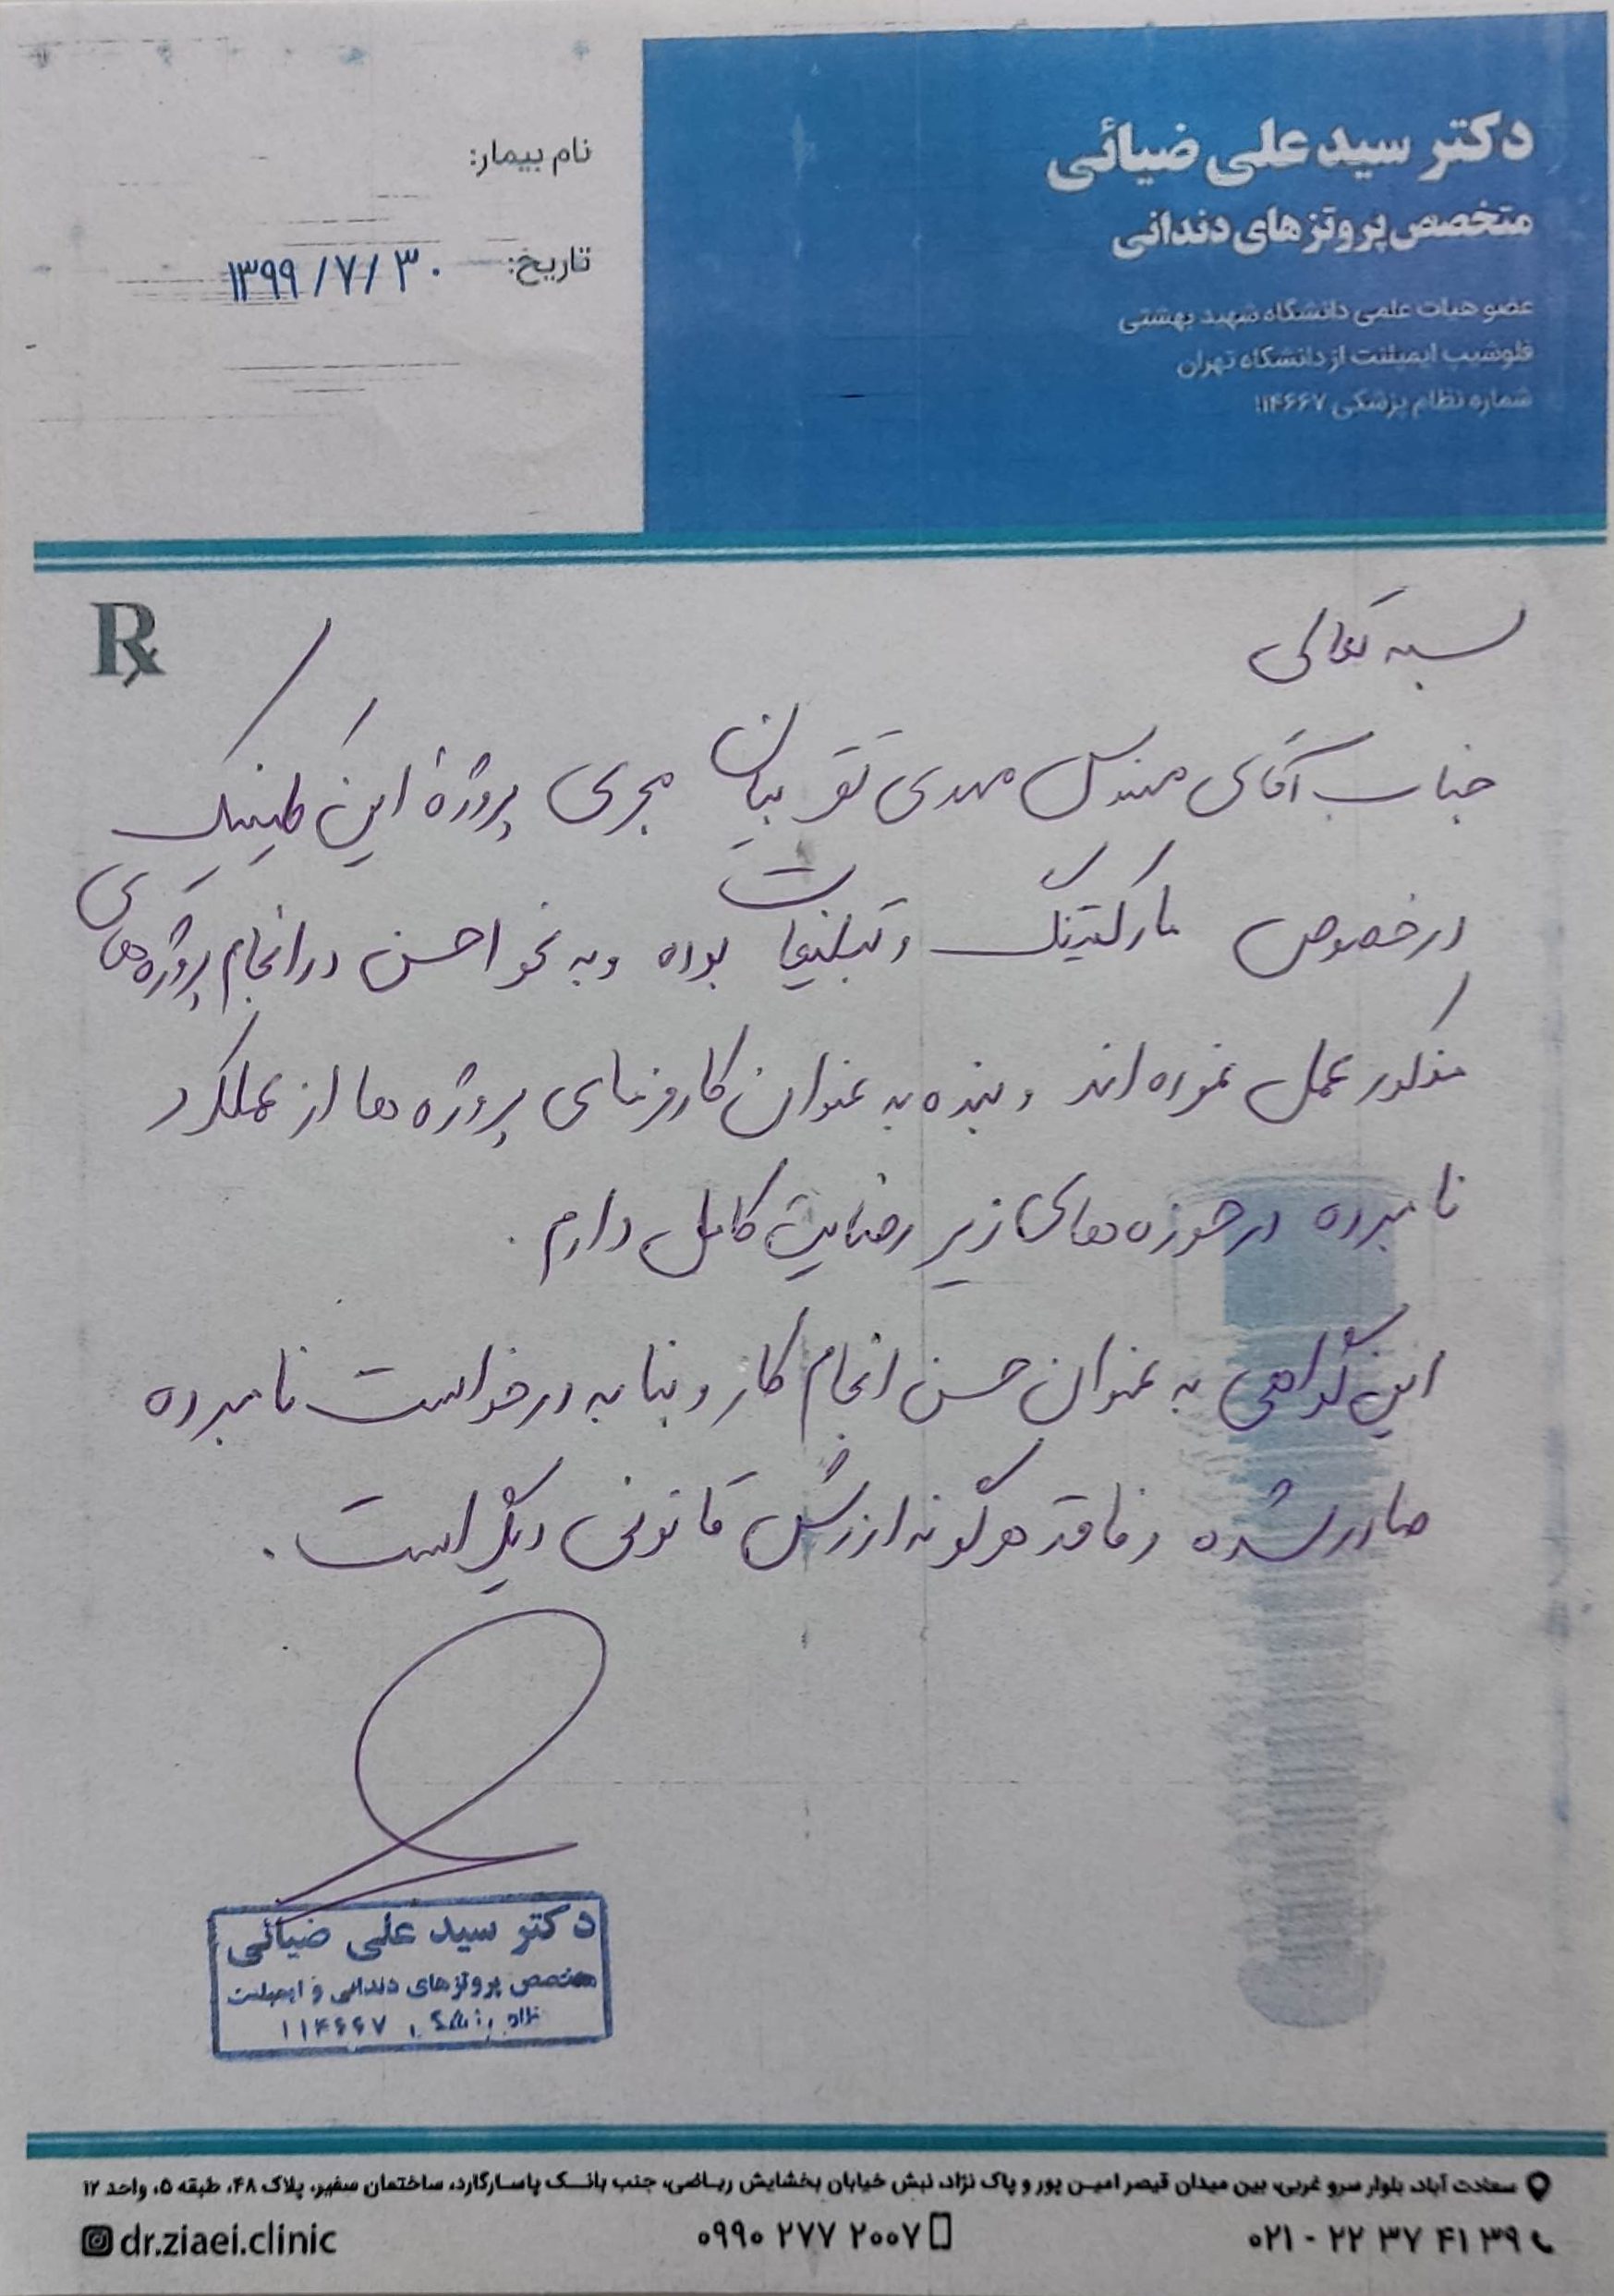 دکتر سید علی ضیائی
متخصص پروتزهای دندانی
عضو هیات علمی دانشگاه شهید بهشتی
فلوشیپ ایمپلنت از دانشگاه تهران
شماره نظام پزشکی ۱۱۴۶۶۷
نام بیمار:
تاریخ: ۱۳۹۹/۷/۳۰
Rx
بسمه تعالی
جناب آقای مهندس مهدی تقربیان مجری پروژهٔ این کلینیک
در خصوص مارکتینگ و تبلیغات بوده و به نحو احسن در انجام پروژه‌های
مذکور عمل نموده اند و بنده به عنوان کارفرمای پروژه ها از عملکرد
نامبرده در حوزه های زیر رضایت کامل دارم.
این گواهی به عنوان حسن انجام کار و بنا به درخواست نامبرده
صادر شده و فاقد هرگونه ارزش قانونی دیگر است.
دکتر سید علی ضیائی
متخصص پروتزهای دندانی و ایمپلنت
۱۱۴۶۶۷
سعادت آباد، بلوار سرو غربی، بین میدان قیصر امین پور و پاک نژاد، نبش خیابان بخشایش ریاضی، جنب بانک پاسارگارد، ساختمان سفیر، پلاک ۴۸، طبقه ۵، واحد ۱۲
۰۲۱ - ۲۲ ۳۷ ۴۱ ۳۹
۰۹۹۰ ۲۷۷ ۲۰۰۷
dr.ziaei.clinic